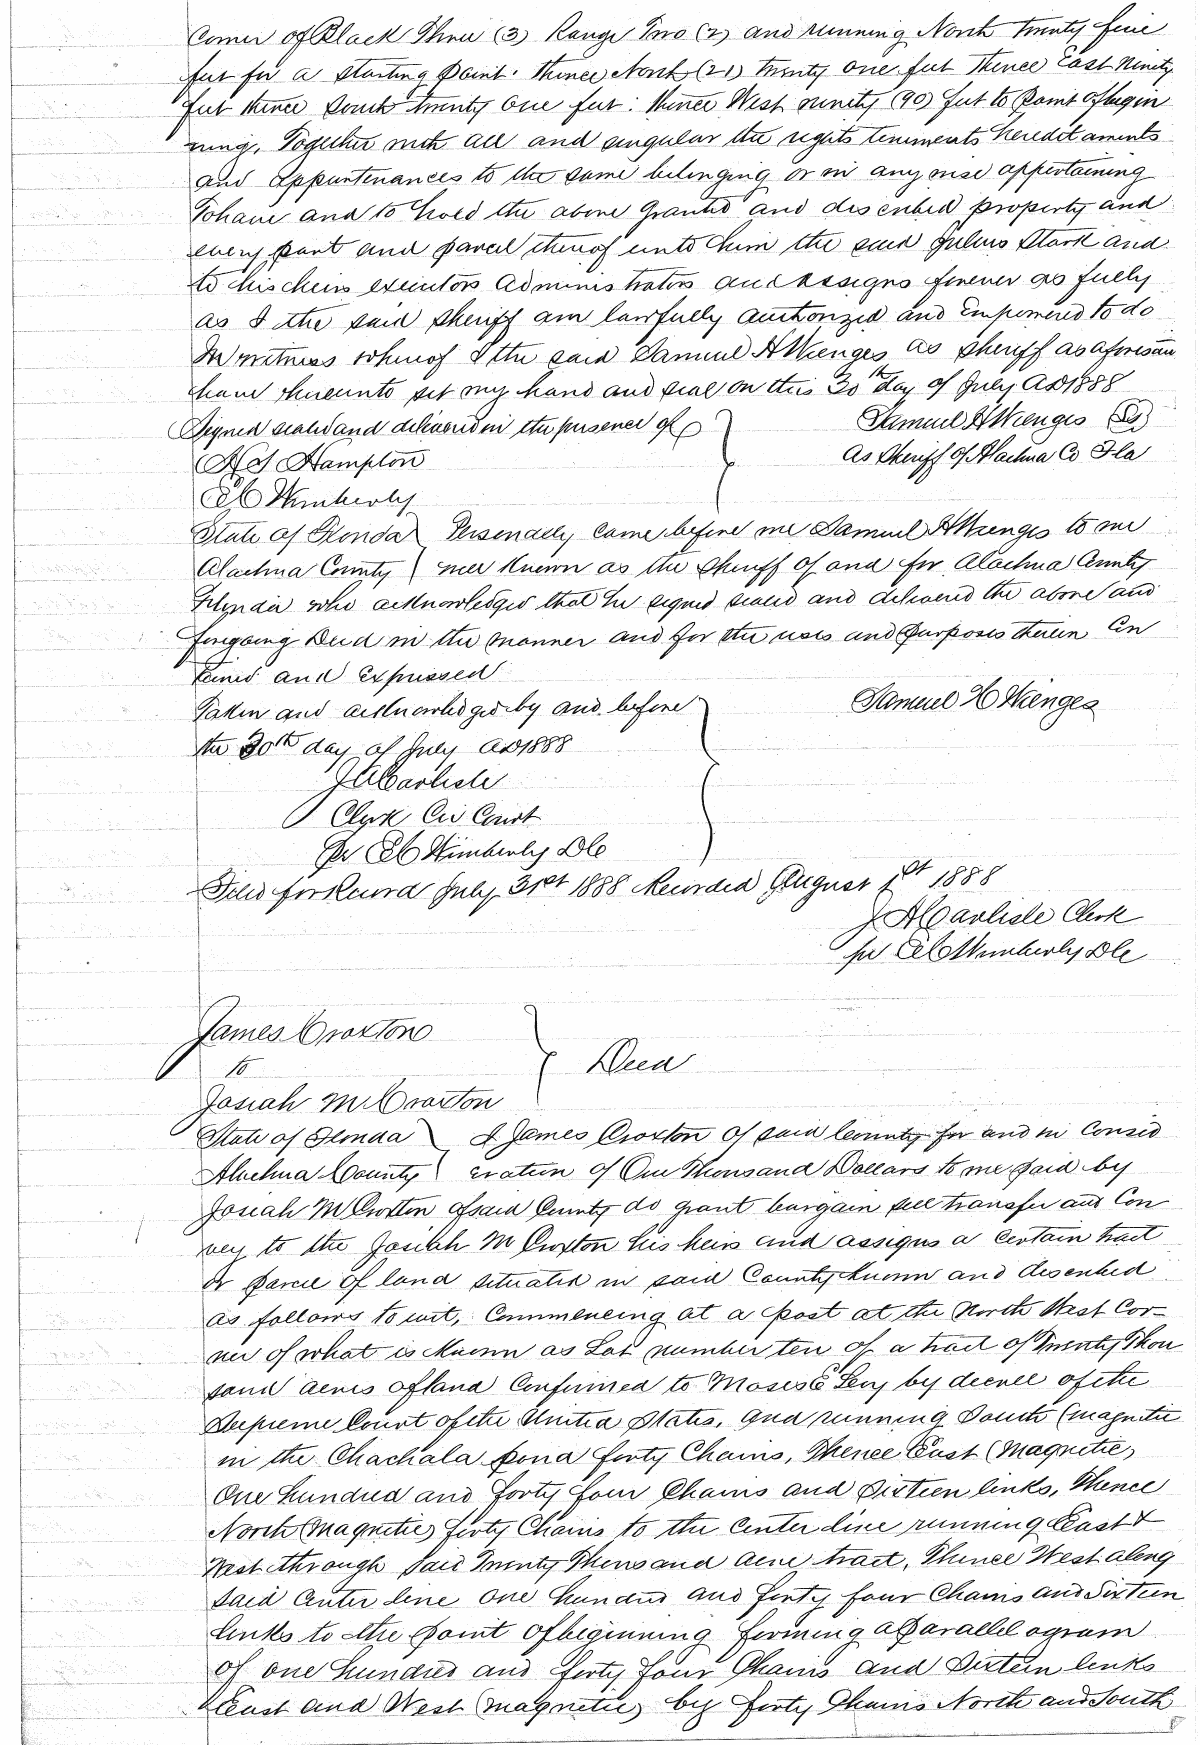 Corner of Block Three (3) Range Two (2) and running North twenty five
feet for a starting point. Thence North (21) twenty one feet Thence East Ninety
feet thence South twenty one feet: thence West ninety (90) feet to Point of begin
ning. Together with all and singular the rights tenements hereditaments
and appurtenances to the same belonging or in any wise appertaining
To have and to hold the above granted and described property and
every part and parcel thereof unto him the said Julius Stark and
to his heirs executors administrators and assigns forever as fully
as I the said Sheriff am lawfully authorized and Empowered to do
In witness whereof I the said Samuel H Wienges as Sheriff as aforesaid
have hereunto set my hand and seal on this 30th day of July AD 1888
Signed sealed and delivered in the presence of
Samuel H Wienges (LS)
As Sheriff of Alachua Co Fla
Hampton
Wimberly
State of Florida Personally came before me Samuel H Wienges to me
Alachua County well known as the Sheriff of and for Alachua County
Florida who acknowledged that he signed sealed and delivered the above and
foregoing Deed in the manner and for the uses and purposes therein Con
tained and expressed
Taken and acknowledged by and before
the 30th day of July AD 1888
Samuel H Wienges
J A Carlisle
Clerk Cir Court
Per Wimberly D C
Filed for Record July 31st 1888 Recorded August 1st 1888
J A Carlisle Clerk
per Wimberly D C
James Croxton
to
Deed
Josiah M Croxton
State of Florida I James Croxton of said County for and in Consid
Alachua County eration of One Thousand Dollars to me paid by
Josiah M Croxton of said County do grant bargain sell transfer and Con
vey to the Josiah M Croxton his heirs and assigns a certain tract
or parcel of land situated in said County known and described
as follows to wit, Commencing at a post at the North West Cor-
ner of what is known as Lot number ten of a tract of Twenty Thou
sand acres of land Confirmed to Moses E Levy by decree of the
Supreme Court of the United States, and running South (magnetic
in the Chachala pond forty Chains, Thence East (Magnetic)
One hundred and forty four Chains and Sixteen links, Thence
North (Magnetic) forty Chains to the Center line running East &
West through said Twenty Thousand acre tract, Thence West along
said Center line one hundred and forty four Chains and Sixteen
links to the point of beginning forming a Parallelogram
of one hundred and forty four Chains and Sixteen links
East and West (magnetic) by forty Chains North and South